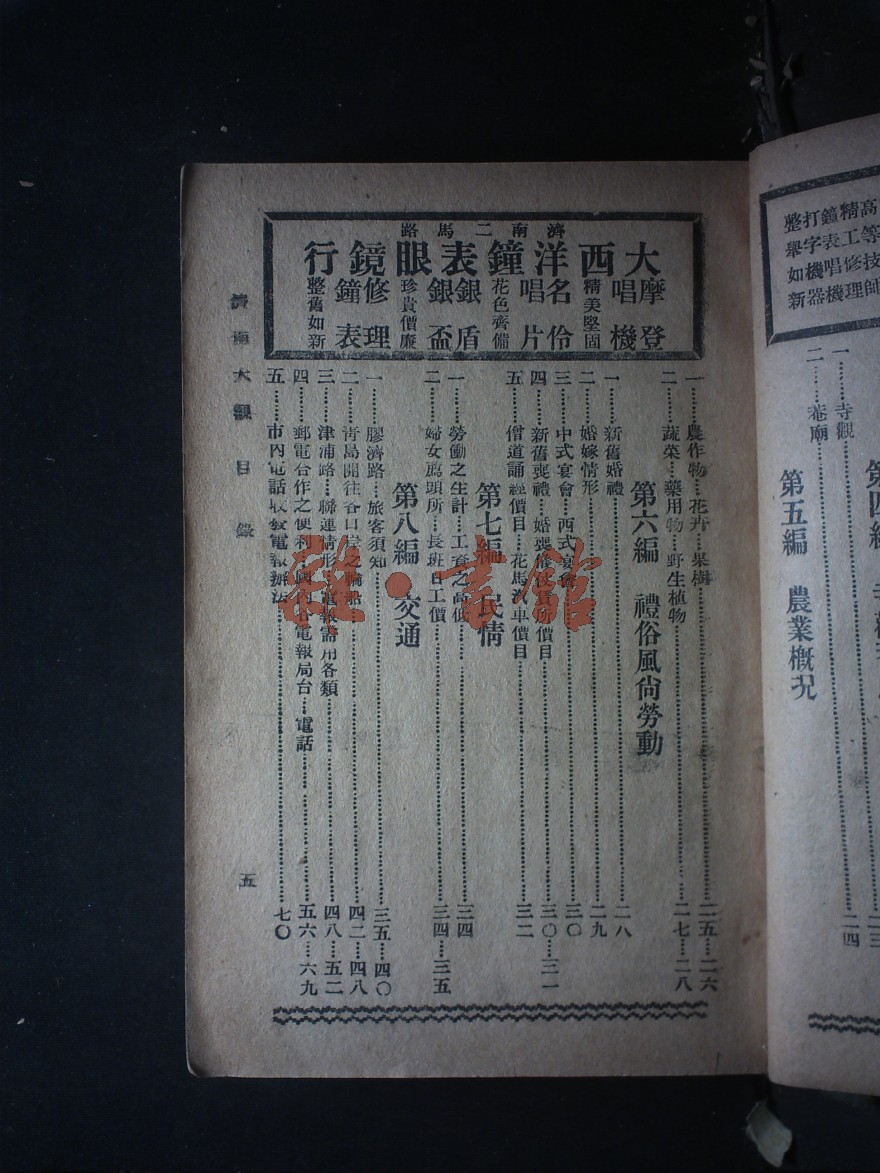 高等技師
精工修理
鐘表唱機
打字機器
整舉如新
一……寺觀……二三
二……菴廟……二四
第五編 農業概況
濟南二馬路
大西洋鐘表眼鏡行
摩登唱機
精美堅固
名伶唱片
花色齊備
銀盾銀盃
珍貴價廉
修理鐘表
整舊如新
一……農作物……花卉……果樹……二五……二六
二……蔬菜……藥用物……野生植物……二七……二八
第六編 禮俗風尙勞動
一……新舊婚禮……二八
二……婚嫁情形……二九
三……中式宴會……西式宴會……三〇
四……新舊喪禮……婚喪 價目……三〇……三一
五……僧道誦經價目……花馬汽車價目……三二
第七編 民情
一……勞働之生計……工資之高低……三四
二……婦女薦頭所……長班日工價……三四……三五
第八編 交通
一……膠濟路……旅客須知……三五……四〇
二……靑島開往各口岸之輪船……四二……四八
三……津浦路……聯運情形……電報需用各類……四八……五二
四……郵電合作之便利……國內各電報局台……電話……五六……六九
五……市內電話收發電報辦法……七〇
濟南大觀 目錄
五
雜·書館